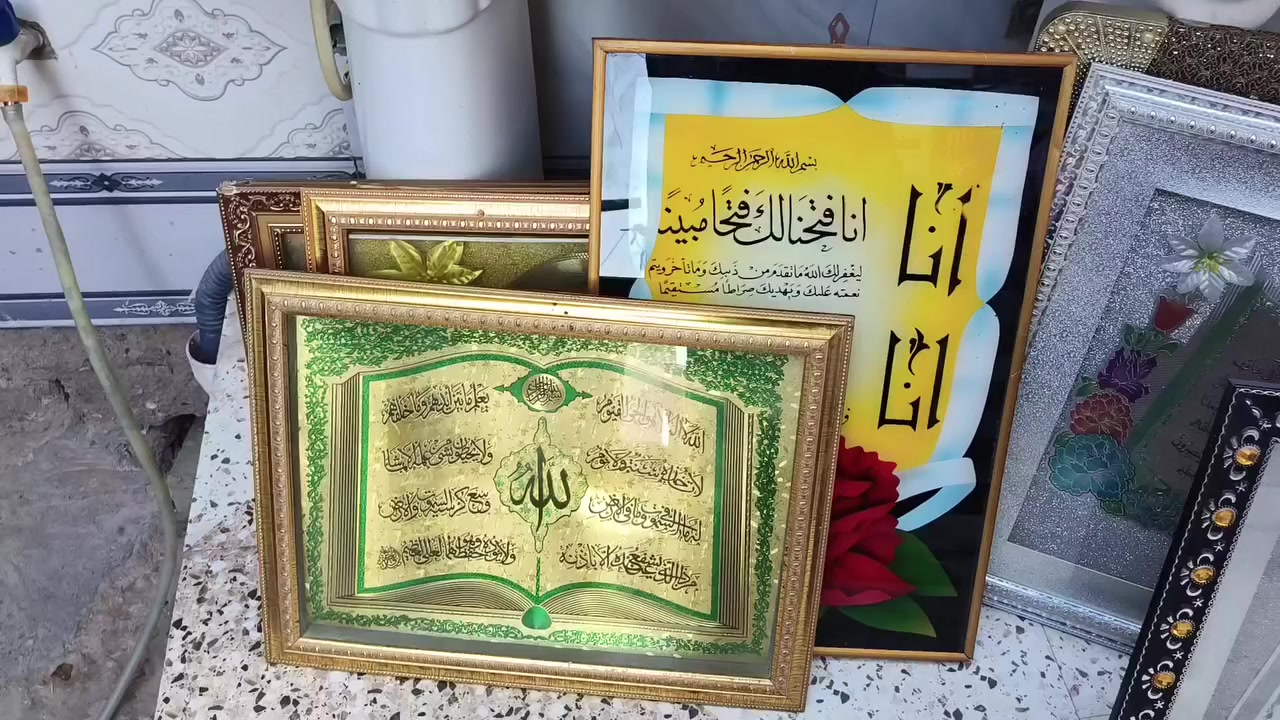 بسم الله الرحمن الرحيم
انا فتحنا لك فتحًا مُبينًا
ليغفر لك الله ما تقدم من ذنبك وما تأخر ويتم
نعمته عليك ويهديك صراطًا مستقيمًا
إنا
إنا
الله لا إله إلا هو الحي القيوم
لا تأخذه سنة ولا نوم
له ما في السموات وما في الأرض
من ذا الذي يشفع عنده إلا بإذنه
يعلم ما بين أيديهم وما خلفهم
ولا يحيطون بشيء من علمه إلا بما شاء
وسع كرسيه السموات والأرض
ولا يؤده حفظهما وهو العلي العظيم
الله